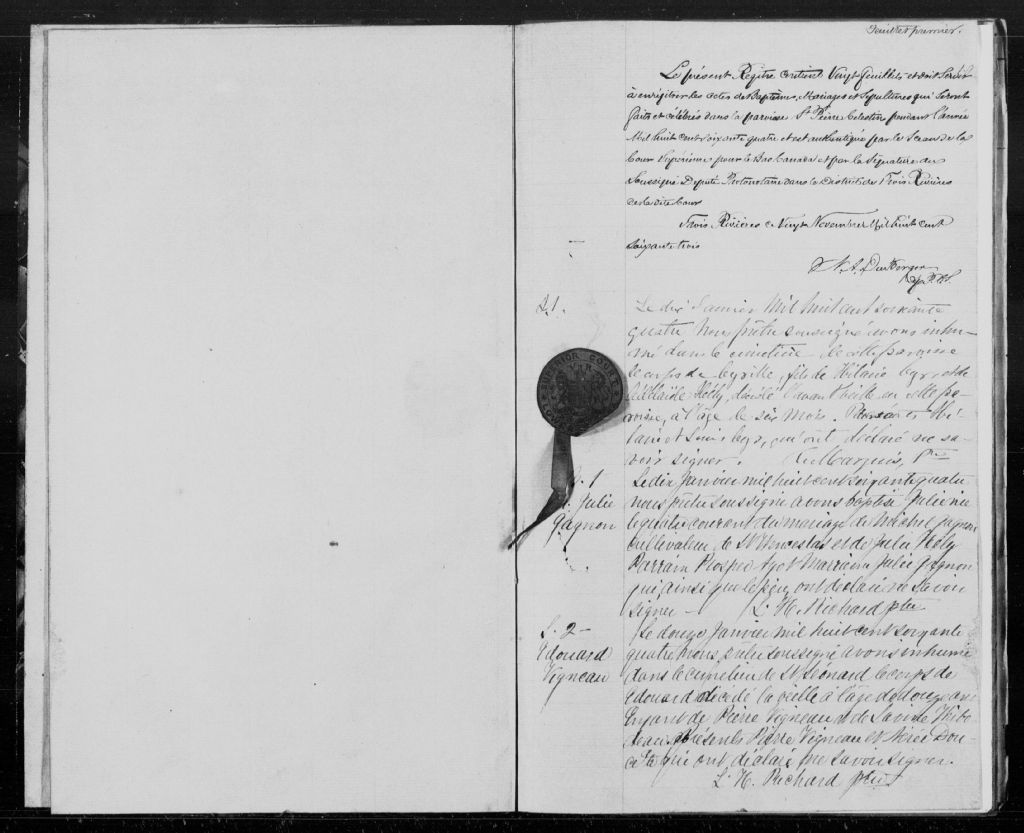 Feuillet premier.
Le présent Régitre contient Vingt feuillets et doit Servir
à enrégitrer les actes de Baptêmes, Mariages et Sépultures qui Seront
faits et célébrés dans la paroisse St Pierre Célestin pendant l'année
Mil huit cent soixante quatre et est authentiqué par le Sceau de la
Cour Supérieure pour le Bas Canada et par la Signature du
Soussigné Député Protonotaire dans le District de Trois Rivières
de la dite Cour
Trois Rivières ce Vingt Novembre Mil huit cent
soixante trois
Dep. P.C.S.
S.1.
Le dix Janvier Mil huit cent soixante
quatre Nous prêtre soussigné avons inhu-
mé dans le cimetière de cette paroisse
le corps de fils de Hilaire et de
décédé l'avant veille en cette pa-
roisse, à l'âge de six mois. Présents Hi-
laire et qui ont déclaré ne sa-
voir signer. Marquis, Ptre
SUPERIOR COURT
1
Julie
Gagnon
Le dix Janvier mil huit cent soixante quatre
nous prêtre soussigné avons baptisé Julie née
le quatre courant du mariage de Michel Gagnon
cultivateur de St Wenceslas et de Julie Hely
Parrain Prosper Marraine Julie Gagnon
qui ainsi que le père ont déclaré ne savoir
signer — L. H. Richard ptre
S. 2 —
Edouard
Vigneau
Le douze Janvier mil huit cent soixante
quatre nous prêtre soussigné avons inhumé
dans le cimetière de St Léonard le corps de
Edouard décédé la veille à l'âge de douze ans
Enfant de Pierre Vigneau et de
Présents Pierre Vigneau et Dou-
cet qui ont déclaré ne savoir signer.
L. H. Richard ptre